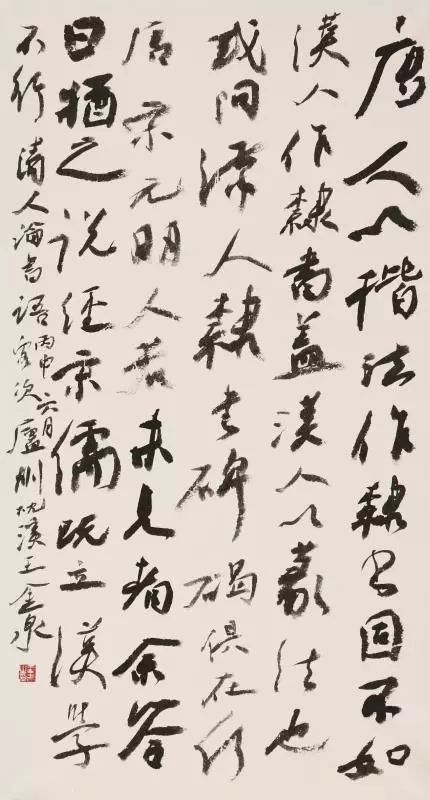 唐人以楷法作隸书固不如
漢人作隸書蓋漢人以篆法也
或问漢人隸书碑碣俱在何
唐宋元明人若未見者余答
曰猶之说经宋儒既立漢學
不行 清人論書语 丙申六月客次廬州 王金泉